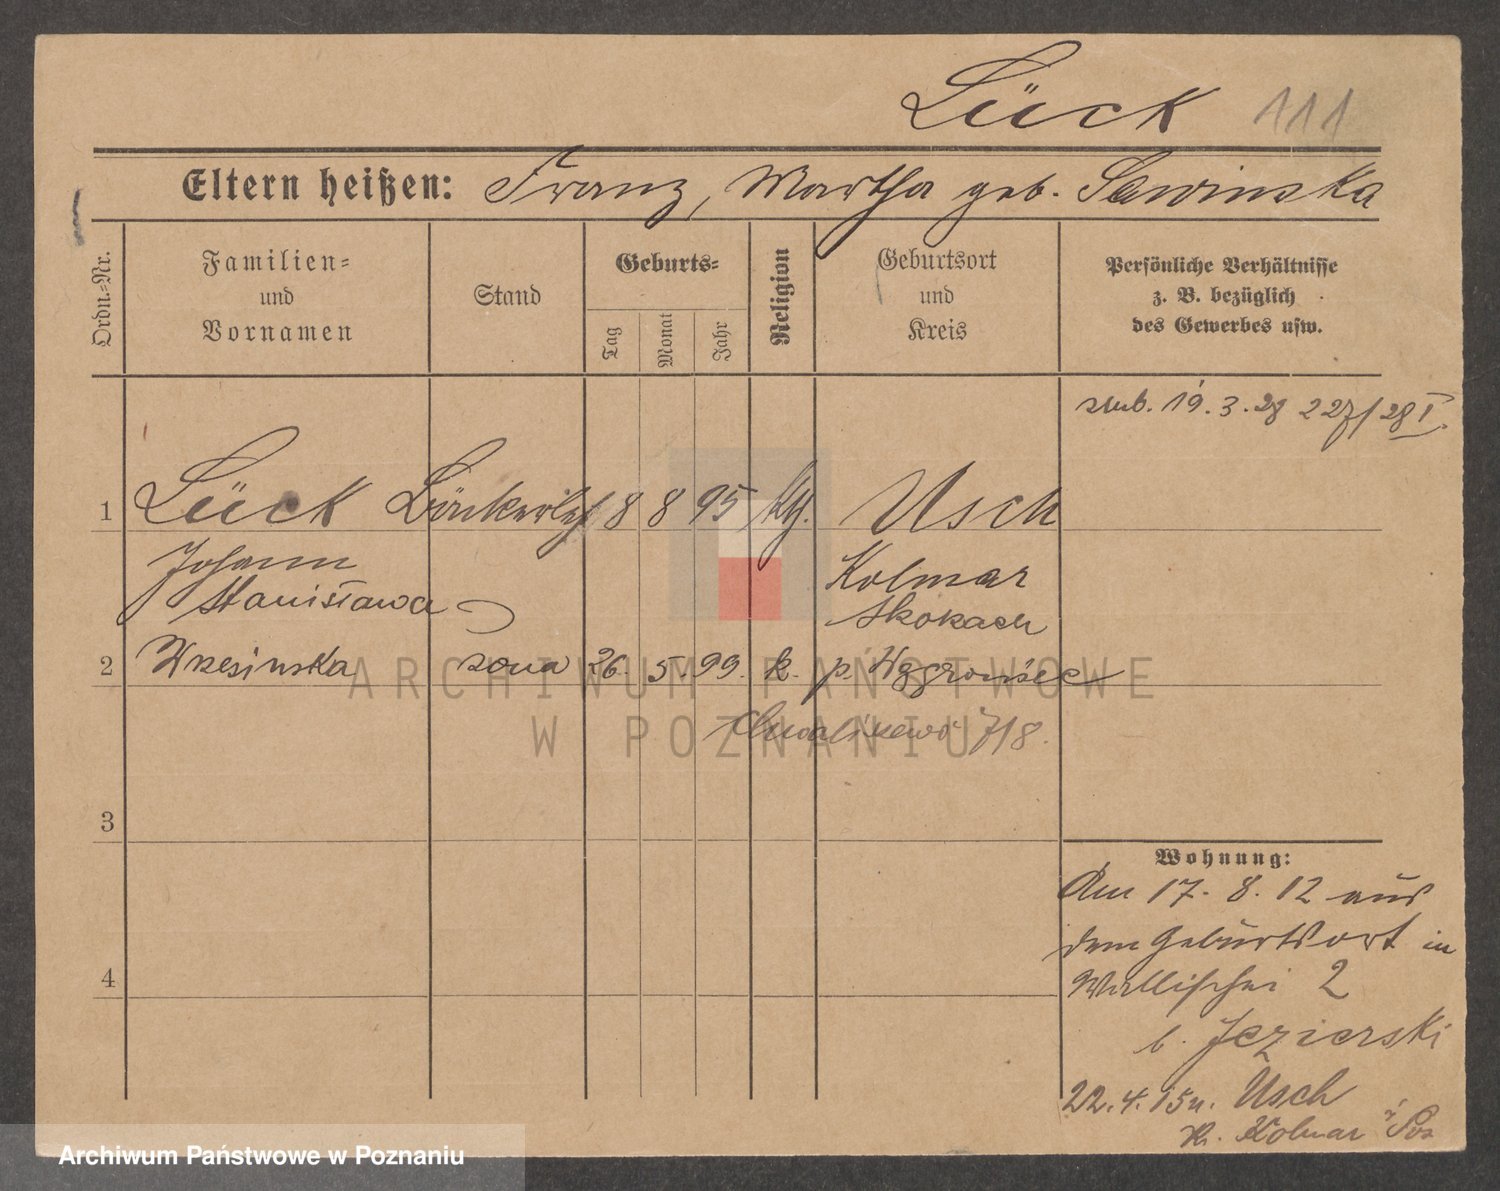 Lück 111
Eltern heißen: Franz, Martha geb. Sawinska
Ordn.=Nr.
Familien= und Vornamen
Stand
Geburts=
Tag
Monat
Jahr
Religion
Geburtsort und Kreis
Persönliche Verhältnisse z. B. bezüglich des Gewerbes usw.
19.3.28 227/28 I.
1 Lück 8 8 95 kth. Usch
Johann Kolmar
Stanisława Skokach
2 Wrzesinska żona 26. 5. 99. k. p. Wągrowiec
Chwaliszewo 7/8.
3
4
Wohnung:
Am 17. 8. 12 aus
dem Geburtsort in
Wallischei 2
b. Jezierski
22.4.15 n. Usch
Kr. Kolmar i Pos
ARCHIWUM PAŃSTWOWE
W POZNANIU
Archiwum Państwowe w Poznaniu